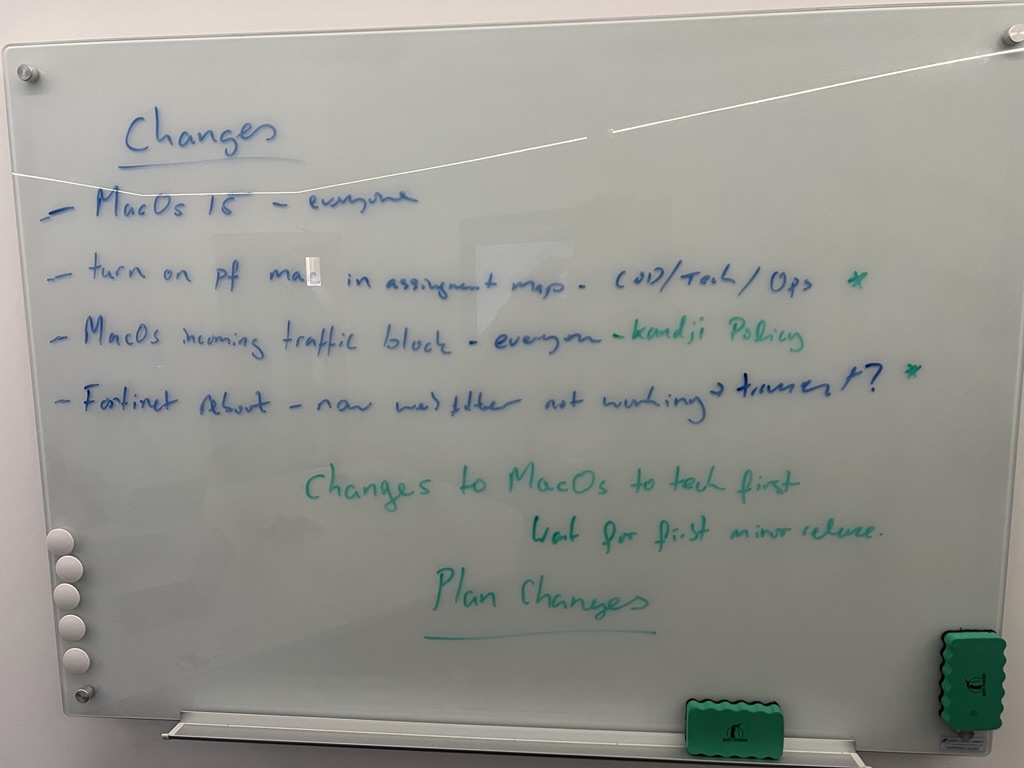 Changes
- MacOs 15 - everyone
- turn on pf mac in assignment map - COD/Tech/Ops *
- MacOs incoming traffic block - everyon - kandji Policy
- Fortinet reboot - now web filter not working → *
Changes to MacOs to tech first
Wait for first minor release.
Plan Changes